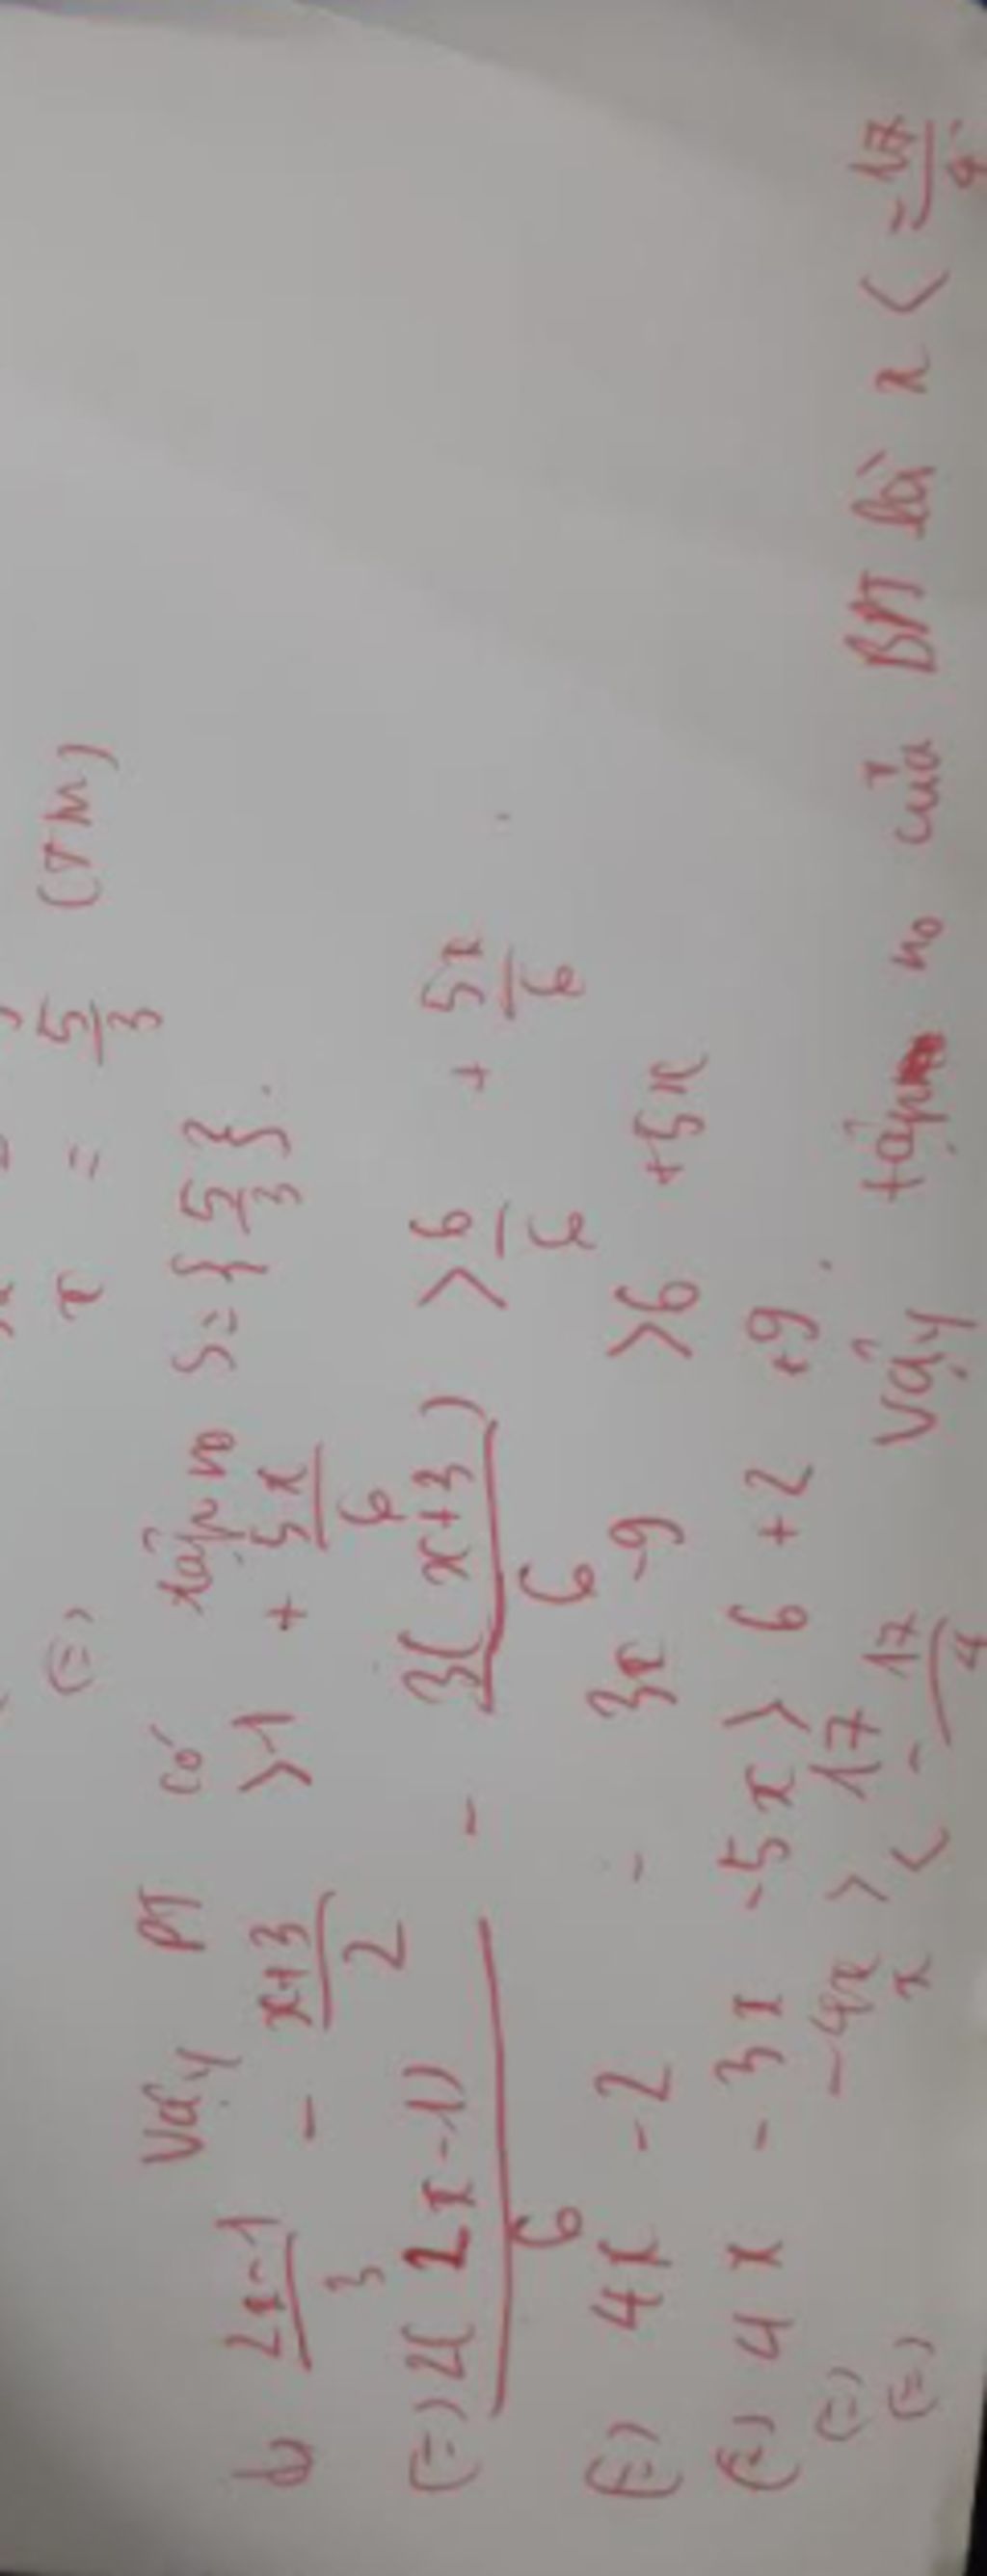 (=) x = 5/3 (TM)
Vậy PT có tập no S = { 5/3 }.
b) 2x-1/3 - x+3/2 > 1 + 5x/6
(=) 2( 2x-1)/6 - 3( x+3 )/6 > 6/6 + 5x/6
(=) 4x - 2 - 3x - 9 > 6 + 5x
(=) 4x - 3x - 5x > 6 + 2 + 9
(=) -4x > 17
(=) x < -17/4 Vậy tập no của BPT là x < -17/4